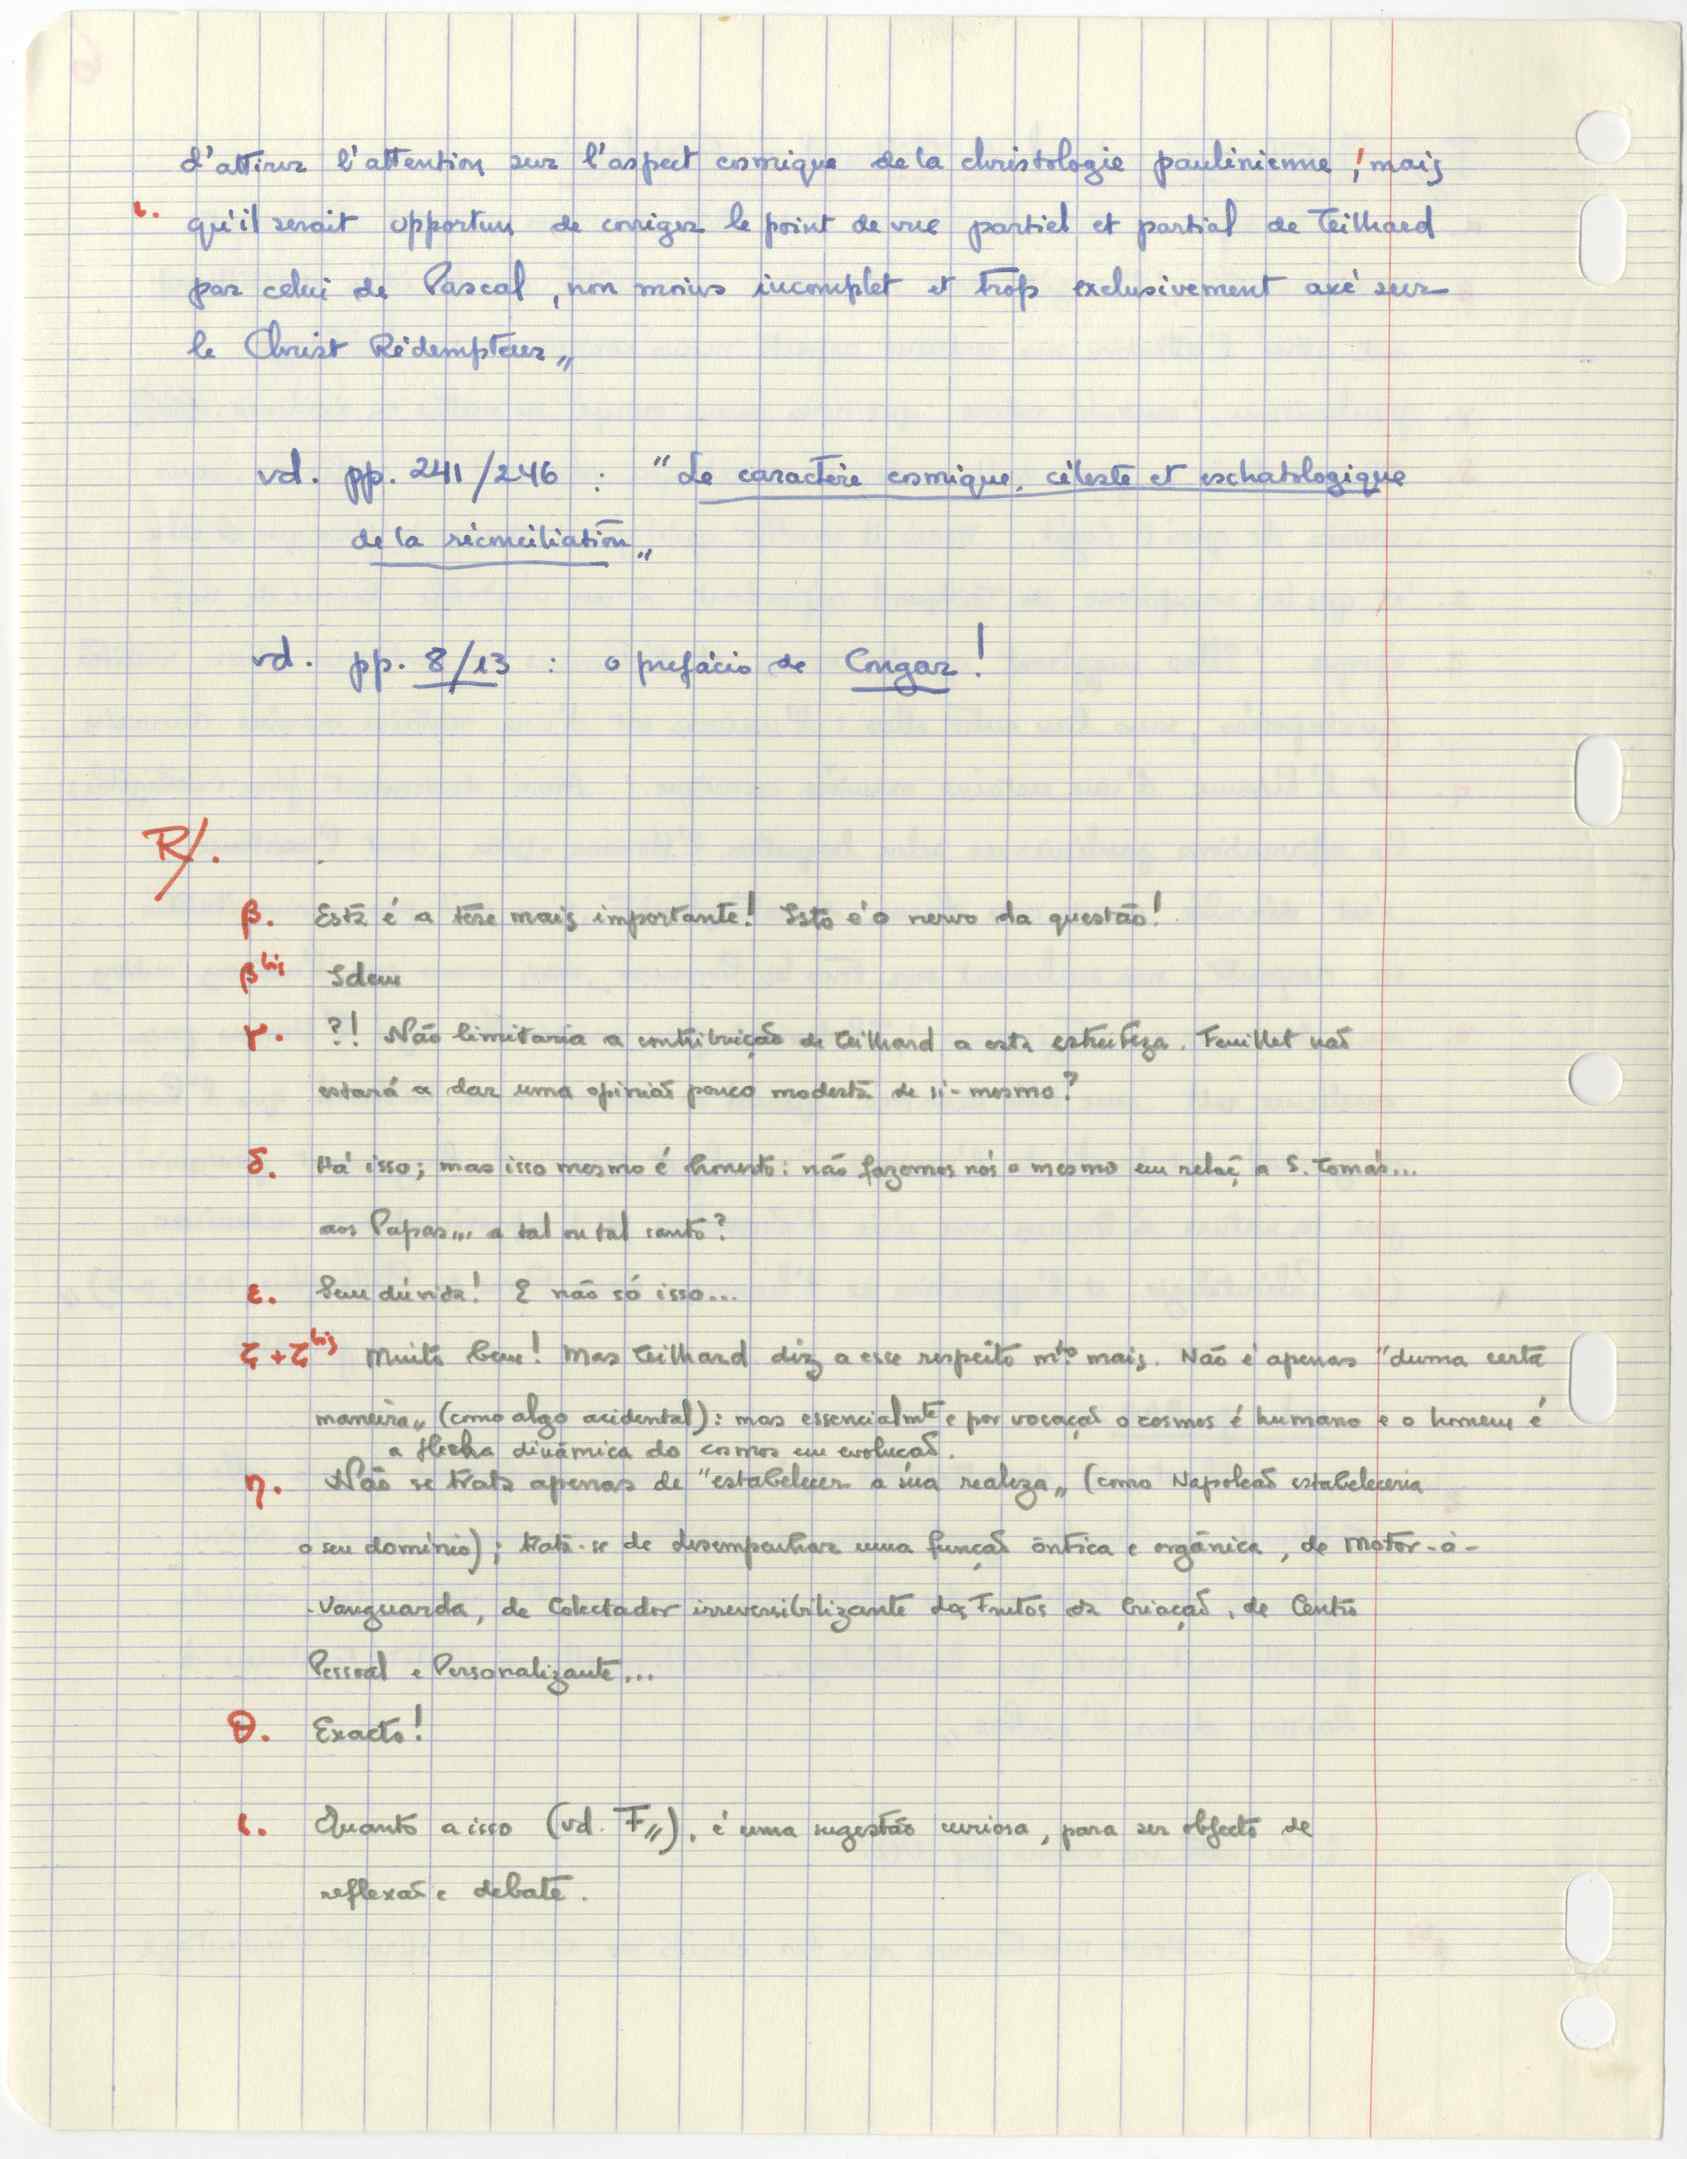 d'attirer l'attention sur l'aspect cosmique de la christologie paulinienne ! mais
ι. qu'il serait opportun de corriger le point de vue partiel et partial de Teilhard
par celui de Pascal, non moins incomplet et trop exclusivement axé sur
le Christ Rédempteur „
vd. pp. 241/246 : "Le caractère cosmique, céleste et eschatologique
de la réconciliation „
vd. pp. 8/13 : o prefácio de Congar !
R/.
β. Esta é a tese mais importante! Isto é o nervo da questão!
β bis Idem
γ. ?! Não limitaria a contribuição de Teilhard a esta estreiteza. Feuillet não
estará a dar uma opinião pouco modesta de si-mesmo?
δ. Há isso; mas isso mesmo é honesto: não fazemos nós o mesmo em relaç. a S. Tomás...
aos Papas... a tal ou tal santo?
ε. Sem dúvida! E não só isso...
ζ + ζ bis Muito bem! Mas Teilhard diz a esse respeito mto mais. Não é apenas "duma certa
maneira„ (como algo acidental): mas essencialmte e por vocação o cosmos é humano e o homem é
a flecha dinâmica do cosmos em evolução.
η. Não se trata apenas de "estabelecer a sua realeza„ (como Napoleão estabeleceria
o seu domínio); trata-se de desempenhar uma função ôntica e orgânica, de Motor-à-
-Vanguarda, de Colectador irreversibilizante dos Frutos da Criação, de Centro
Pessoal e Personalizante...
θ. Exacto!
ι. Quanto a isso (vd. F„), é uma sugestão curiosa, para ser objecto de
reflexão e debate.